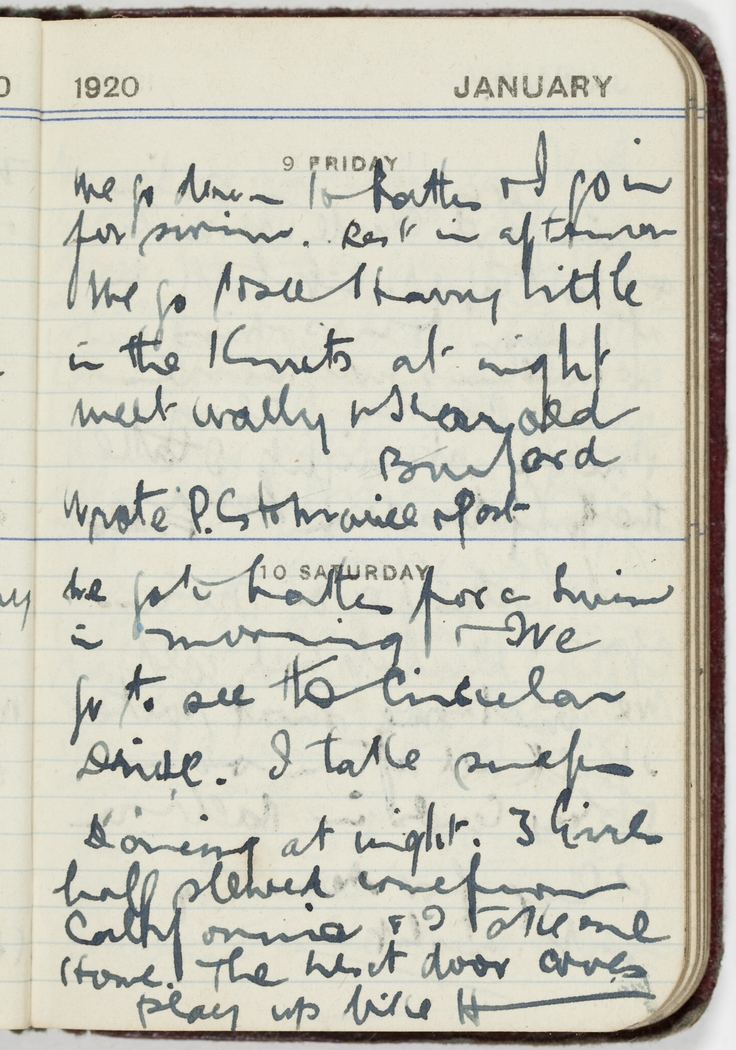 0 1920 JANUARY
9 FRIDAY
We go down to baths & I go in
for swim. Rest in afternoon
We go to see Harry Little
in the Knuts at night
meet Wally & Shear old
Bruford
Wrote P.C. to &
10 SATURDAY
We go to baths for a Swim
in morning We
go to see the Circular
Drive. I take snaps
Dancing at night. 3 Girls
half slewed come from
California & I take one
Home. The next door coves
play up like H